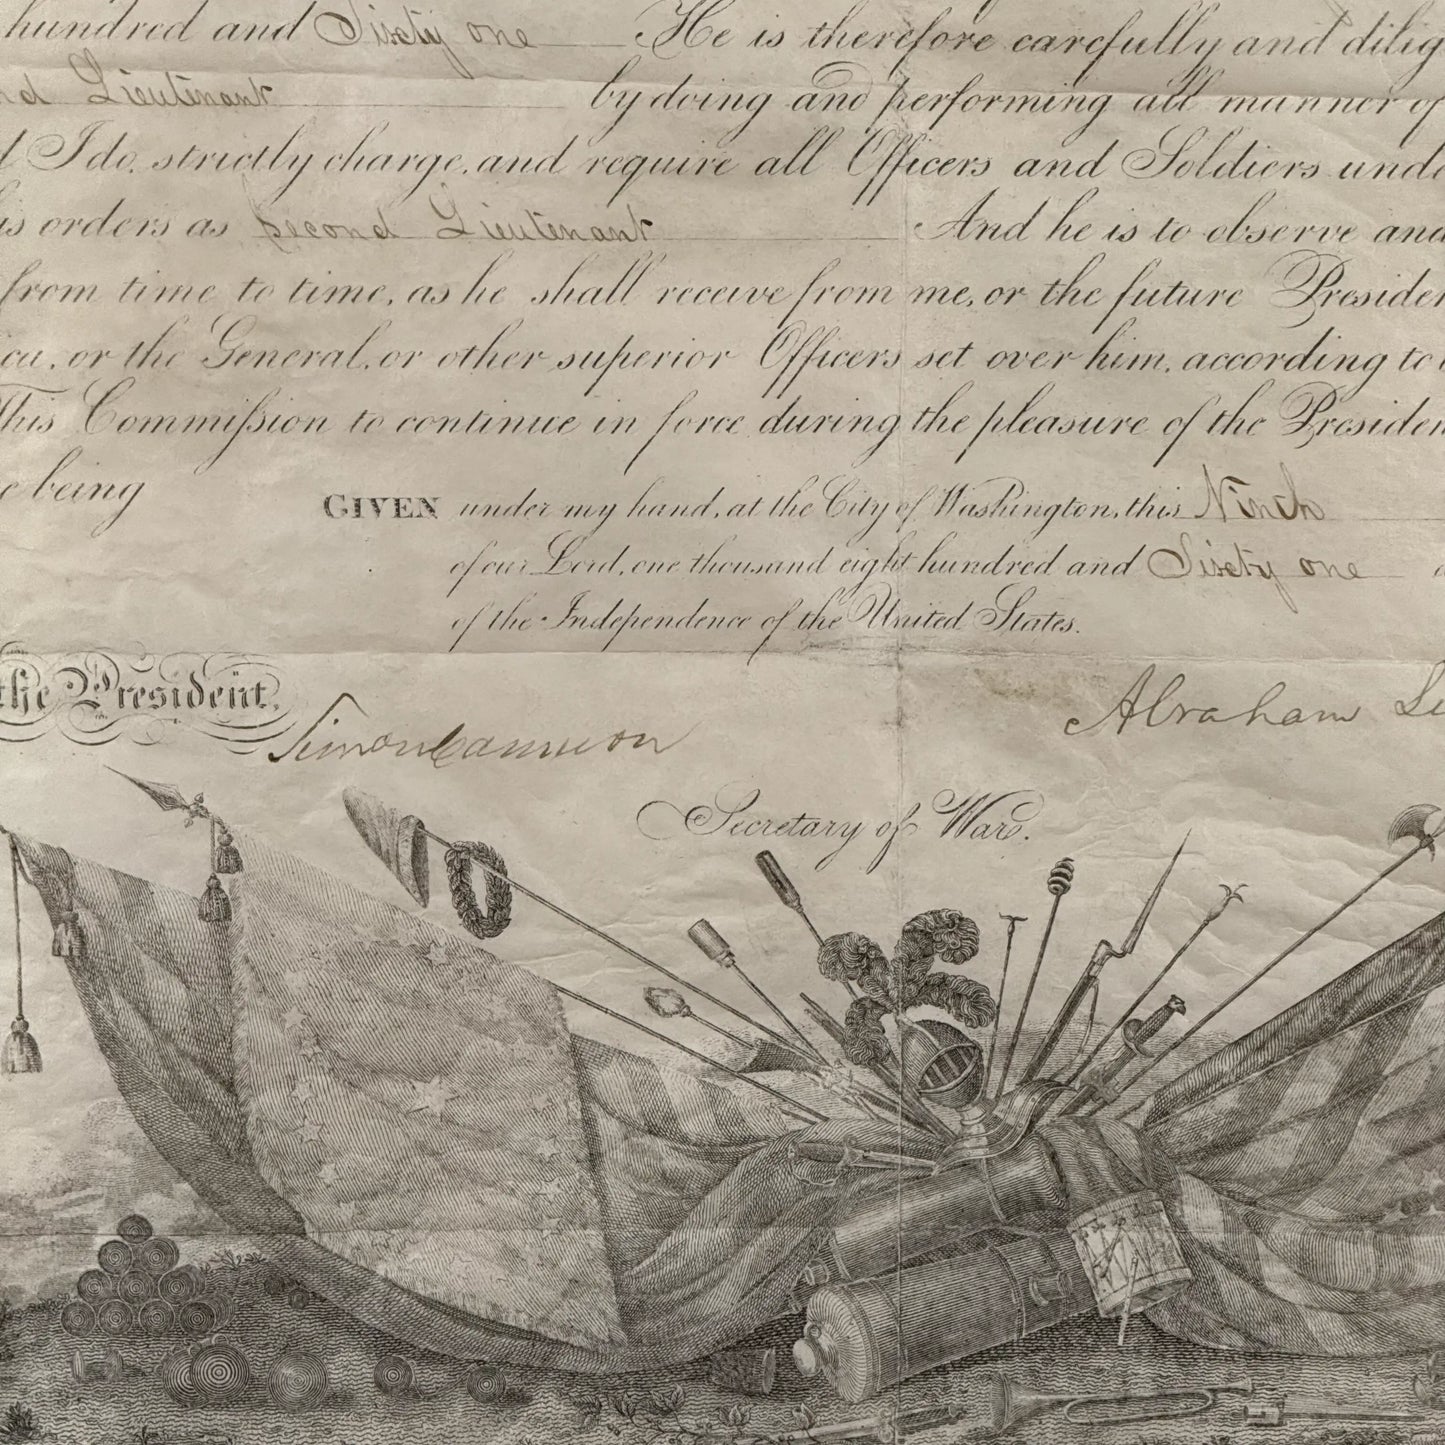 hundred and Sixty one He is therefore carefully and dilig
nd Lieutenant by doing and performing all manner of
d I do, strictly charge, and require all Officers and Soldiers unde
is orders as Second Lieutenant And he is to observe and
from time to time, as he shall receive from me, or the future Presiden
ica, or the General, or other superior Officers set over him, according to
This Commission to continue in force during the pleasure of the Presiden
e being
GIVEN under my hand, at the City of Washington, this Ninth
of our Lord, one thousand eight hundred and Sixty one
of the Independence of the United States.
the President,
Simon Cameron
Abraham Li
Secretary of War.